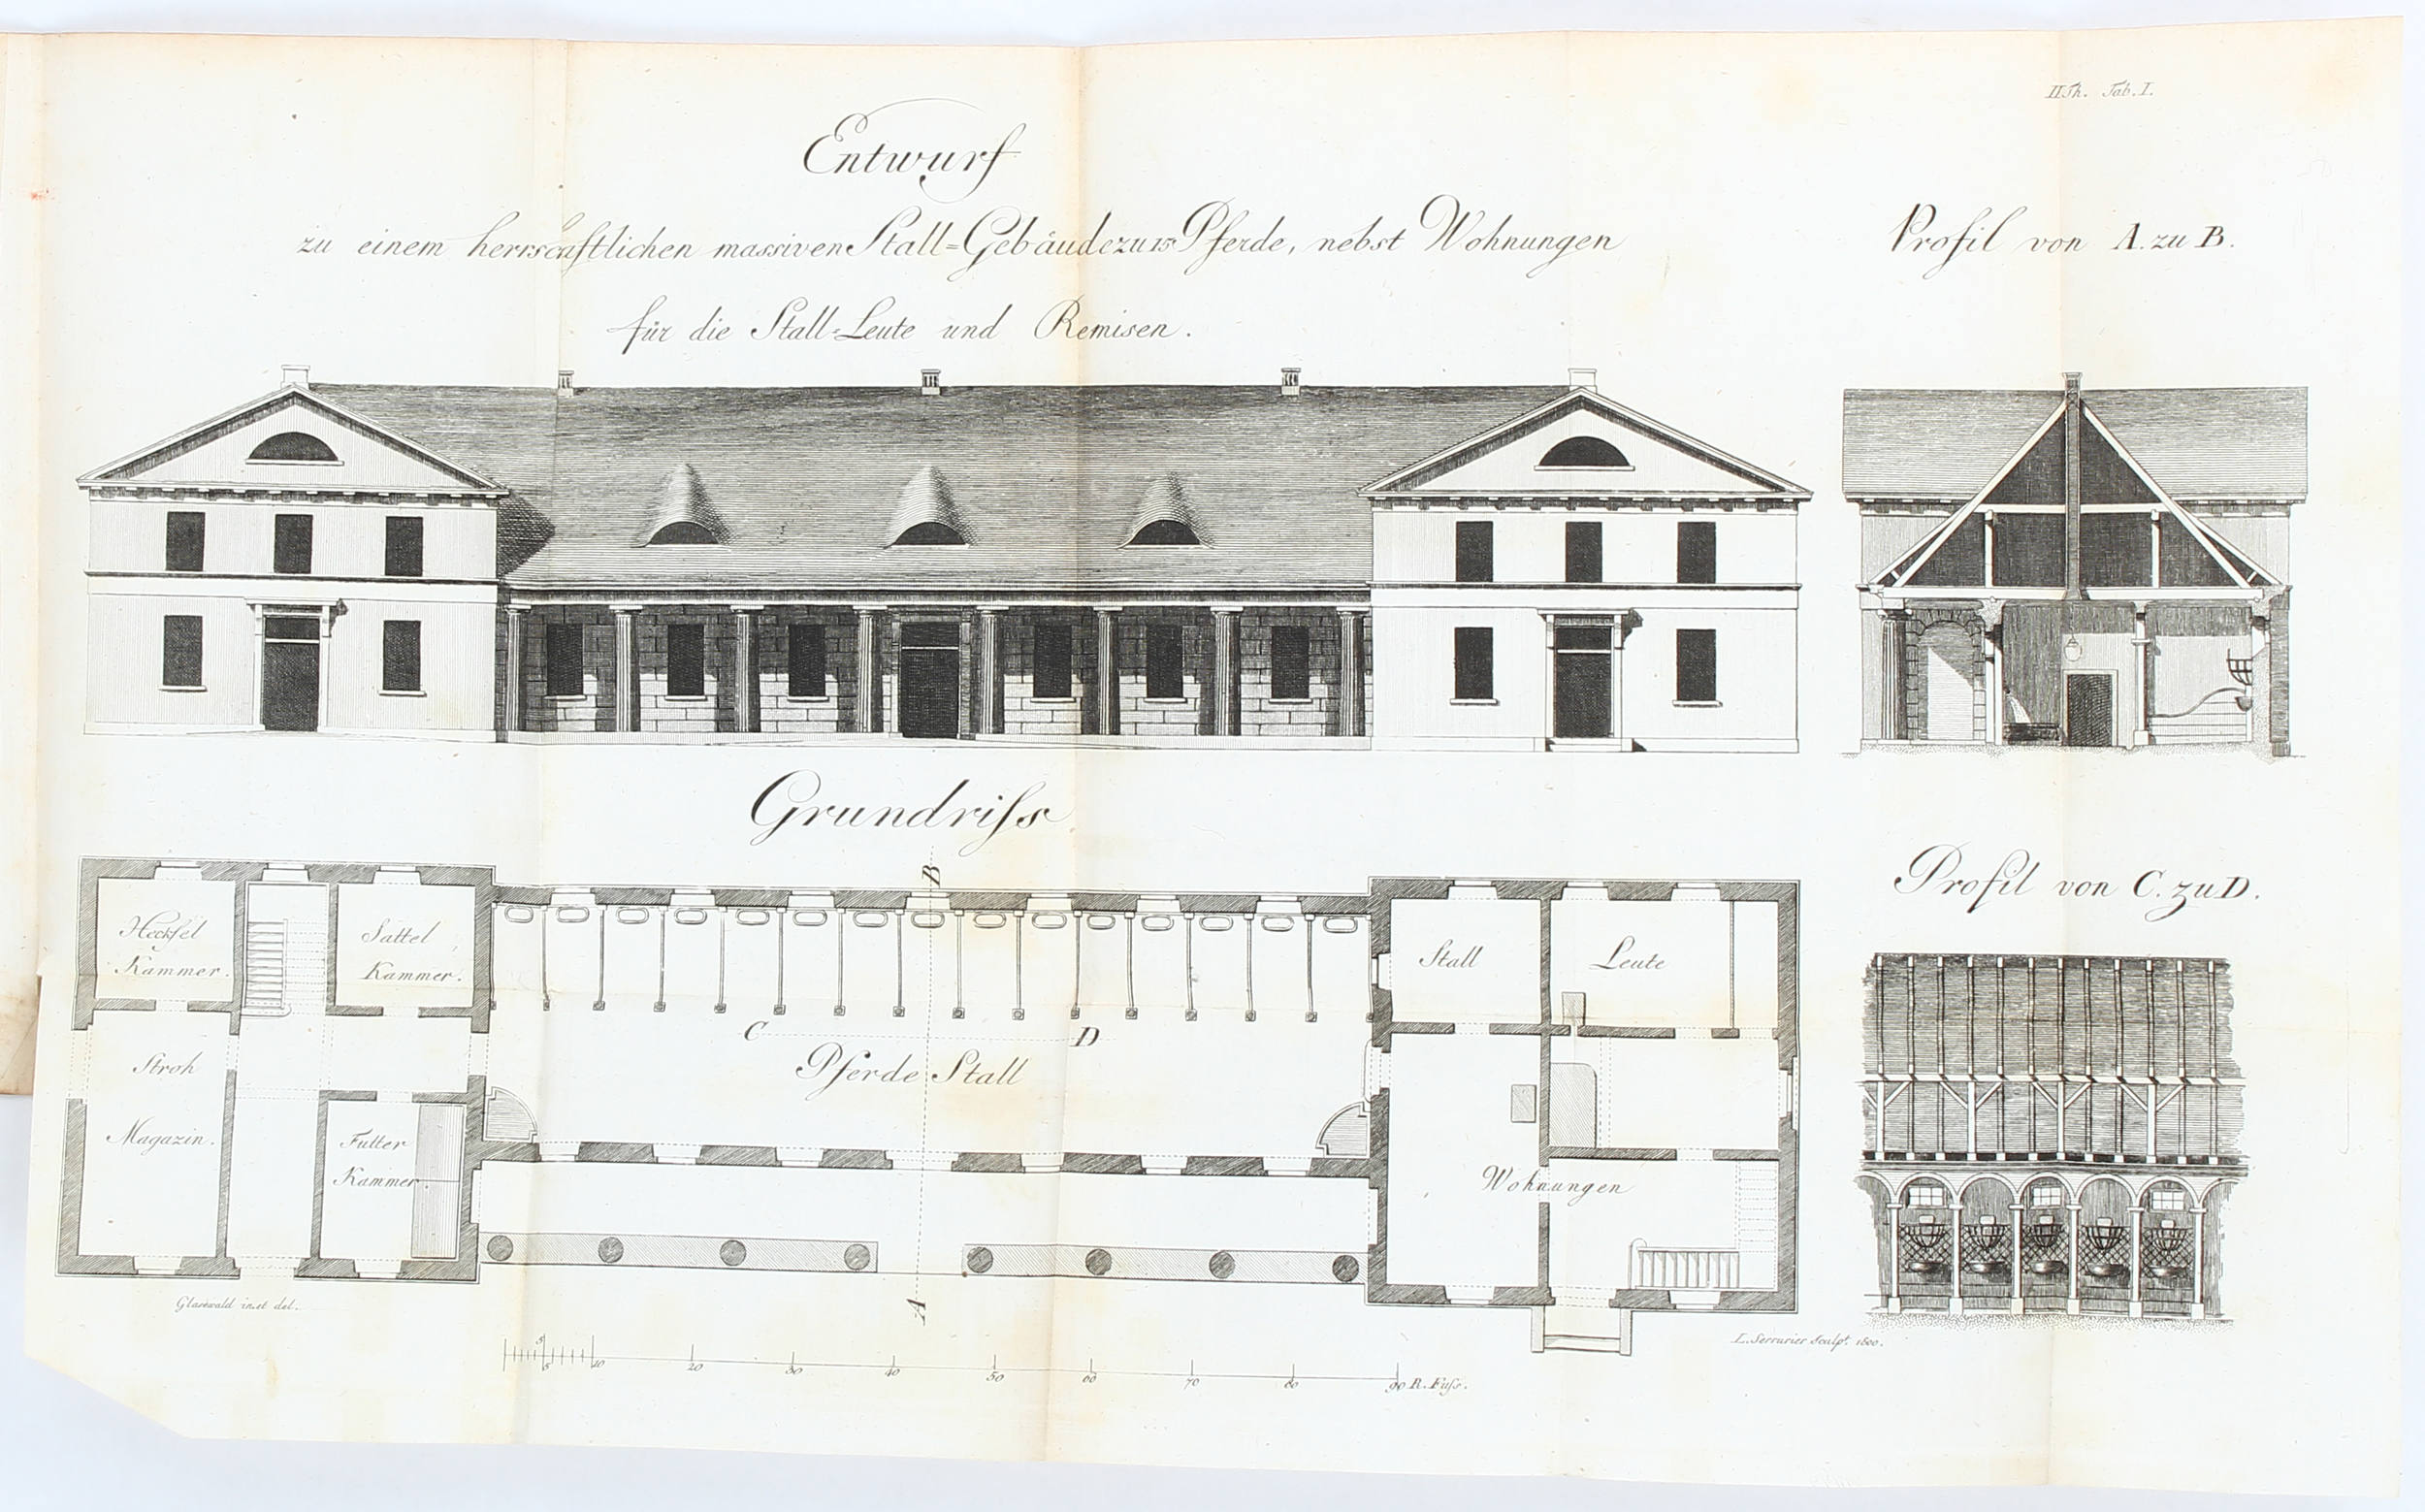 II Th. Tab. I.
Entwurf
zu einem herrschaftlichen massiven Stall=Gebäude zu 15 Pferde, nebst Wohnungen
für die Stall-Leute und Remisen.
Profil von A. zu B.
Grundriſs
B
Profil von C. zu D.
Heckſel
Kammer.
Sattel
Kammer.
Stall Leute
C D
Pferde Stall
Stroh
Magazin.
Futter
Kammer.
Wohnungen
A
Glasewald in. et del.
L. Serrurier Sculpt. 1800.
5
5 10 20 30 40 50 60 70 80 90 R. Fuſs.